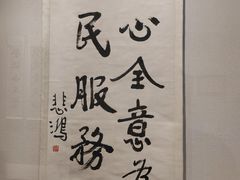 心全意為
民服務
悲鴻